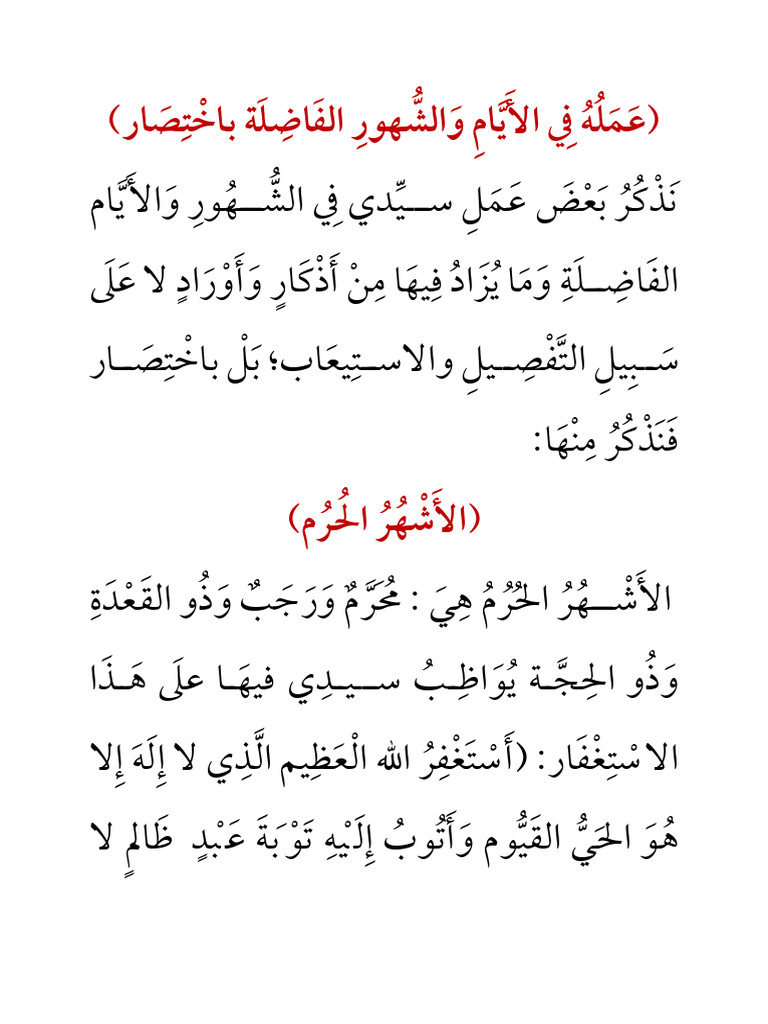 (عَمَلُهُ فِي الأَيَّامِ وَالشُّهورِ الفَاضِلَة باخْتِصَار)
نَذْكُرُ بَعْضَ عَمَلِ سيِّدي فِي الشُّهُورِ وَالأَيَّام
الفَاضِلَةِ وَمَا يُزَادُ فِيهَا مِنْ أَذْكَارٍ وَأَوْرَادٍ لا عَلَى
سَبِيلِ التَّفْصِيلِ والاستِيعَاب؛ بَلْ باخْتِصَار
فَنَذْكُرُ مِنْهَا:
(الأَشْهُرُ الحُرُم)
الأَشْهُرُ الحُرُمُ هِيَ : مُحَرَّمٌ وَرَجَبٌ وَذُو القَعْدَةِ
وَذُو الحِجَّة يُوَاظِبُ سيدِي فيهَا علَى هَذَا
الاسْتِغْفَار: (أَسْتَغْفِرُ الله الْعَظِيم الَّذِي لا إِلَهَ إِلا
هُوَ الحَيُّ القَيُّوم وَأَتُوبُ إِلَيْهِ تَوْبَةَ عَبْدٍ ظَالمٍ لا